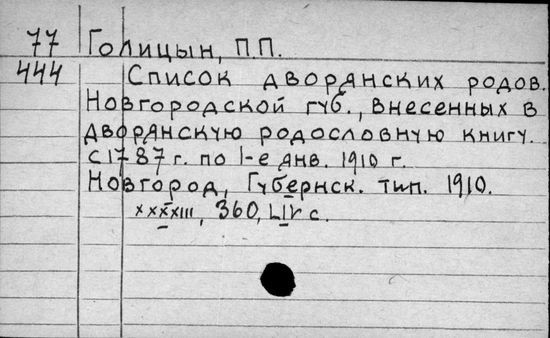 77 Голицын, П.П.
444 Список дворянских родов.
Новгородской губ., внесенных в
дворянскую родословную книгу.
с 1787 г. по 1-е янв. 1910 г.
Новгород, Губернск. тип. 1910.
XXXXIII, 360, LIV с.